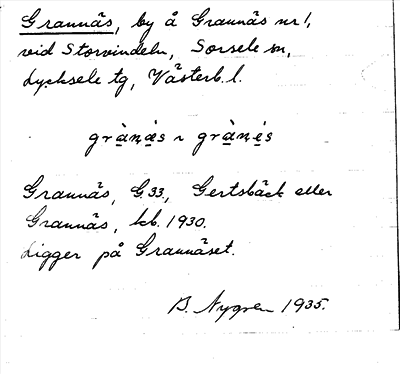 Grannäs, by å Grannäs nr 1,
vid Storvindeln, Sorsele sn,
Lycksele tg, Västerb. l.
grànæs ~ grànés
Grannäs, G. 33, Gertsbäck eller
Grannäs, kb. 1930.
Ligger på Grannäset.
B. Nygren 1935.